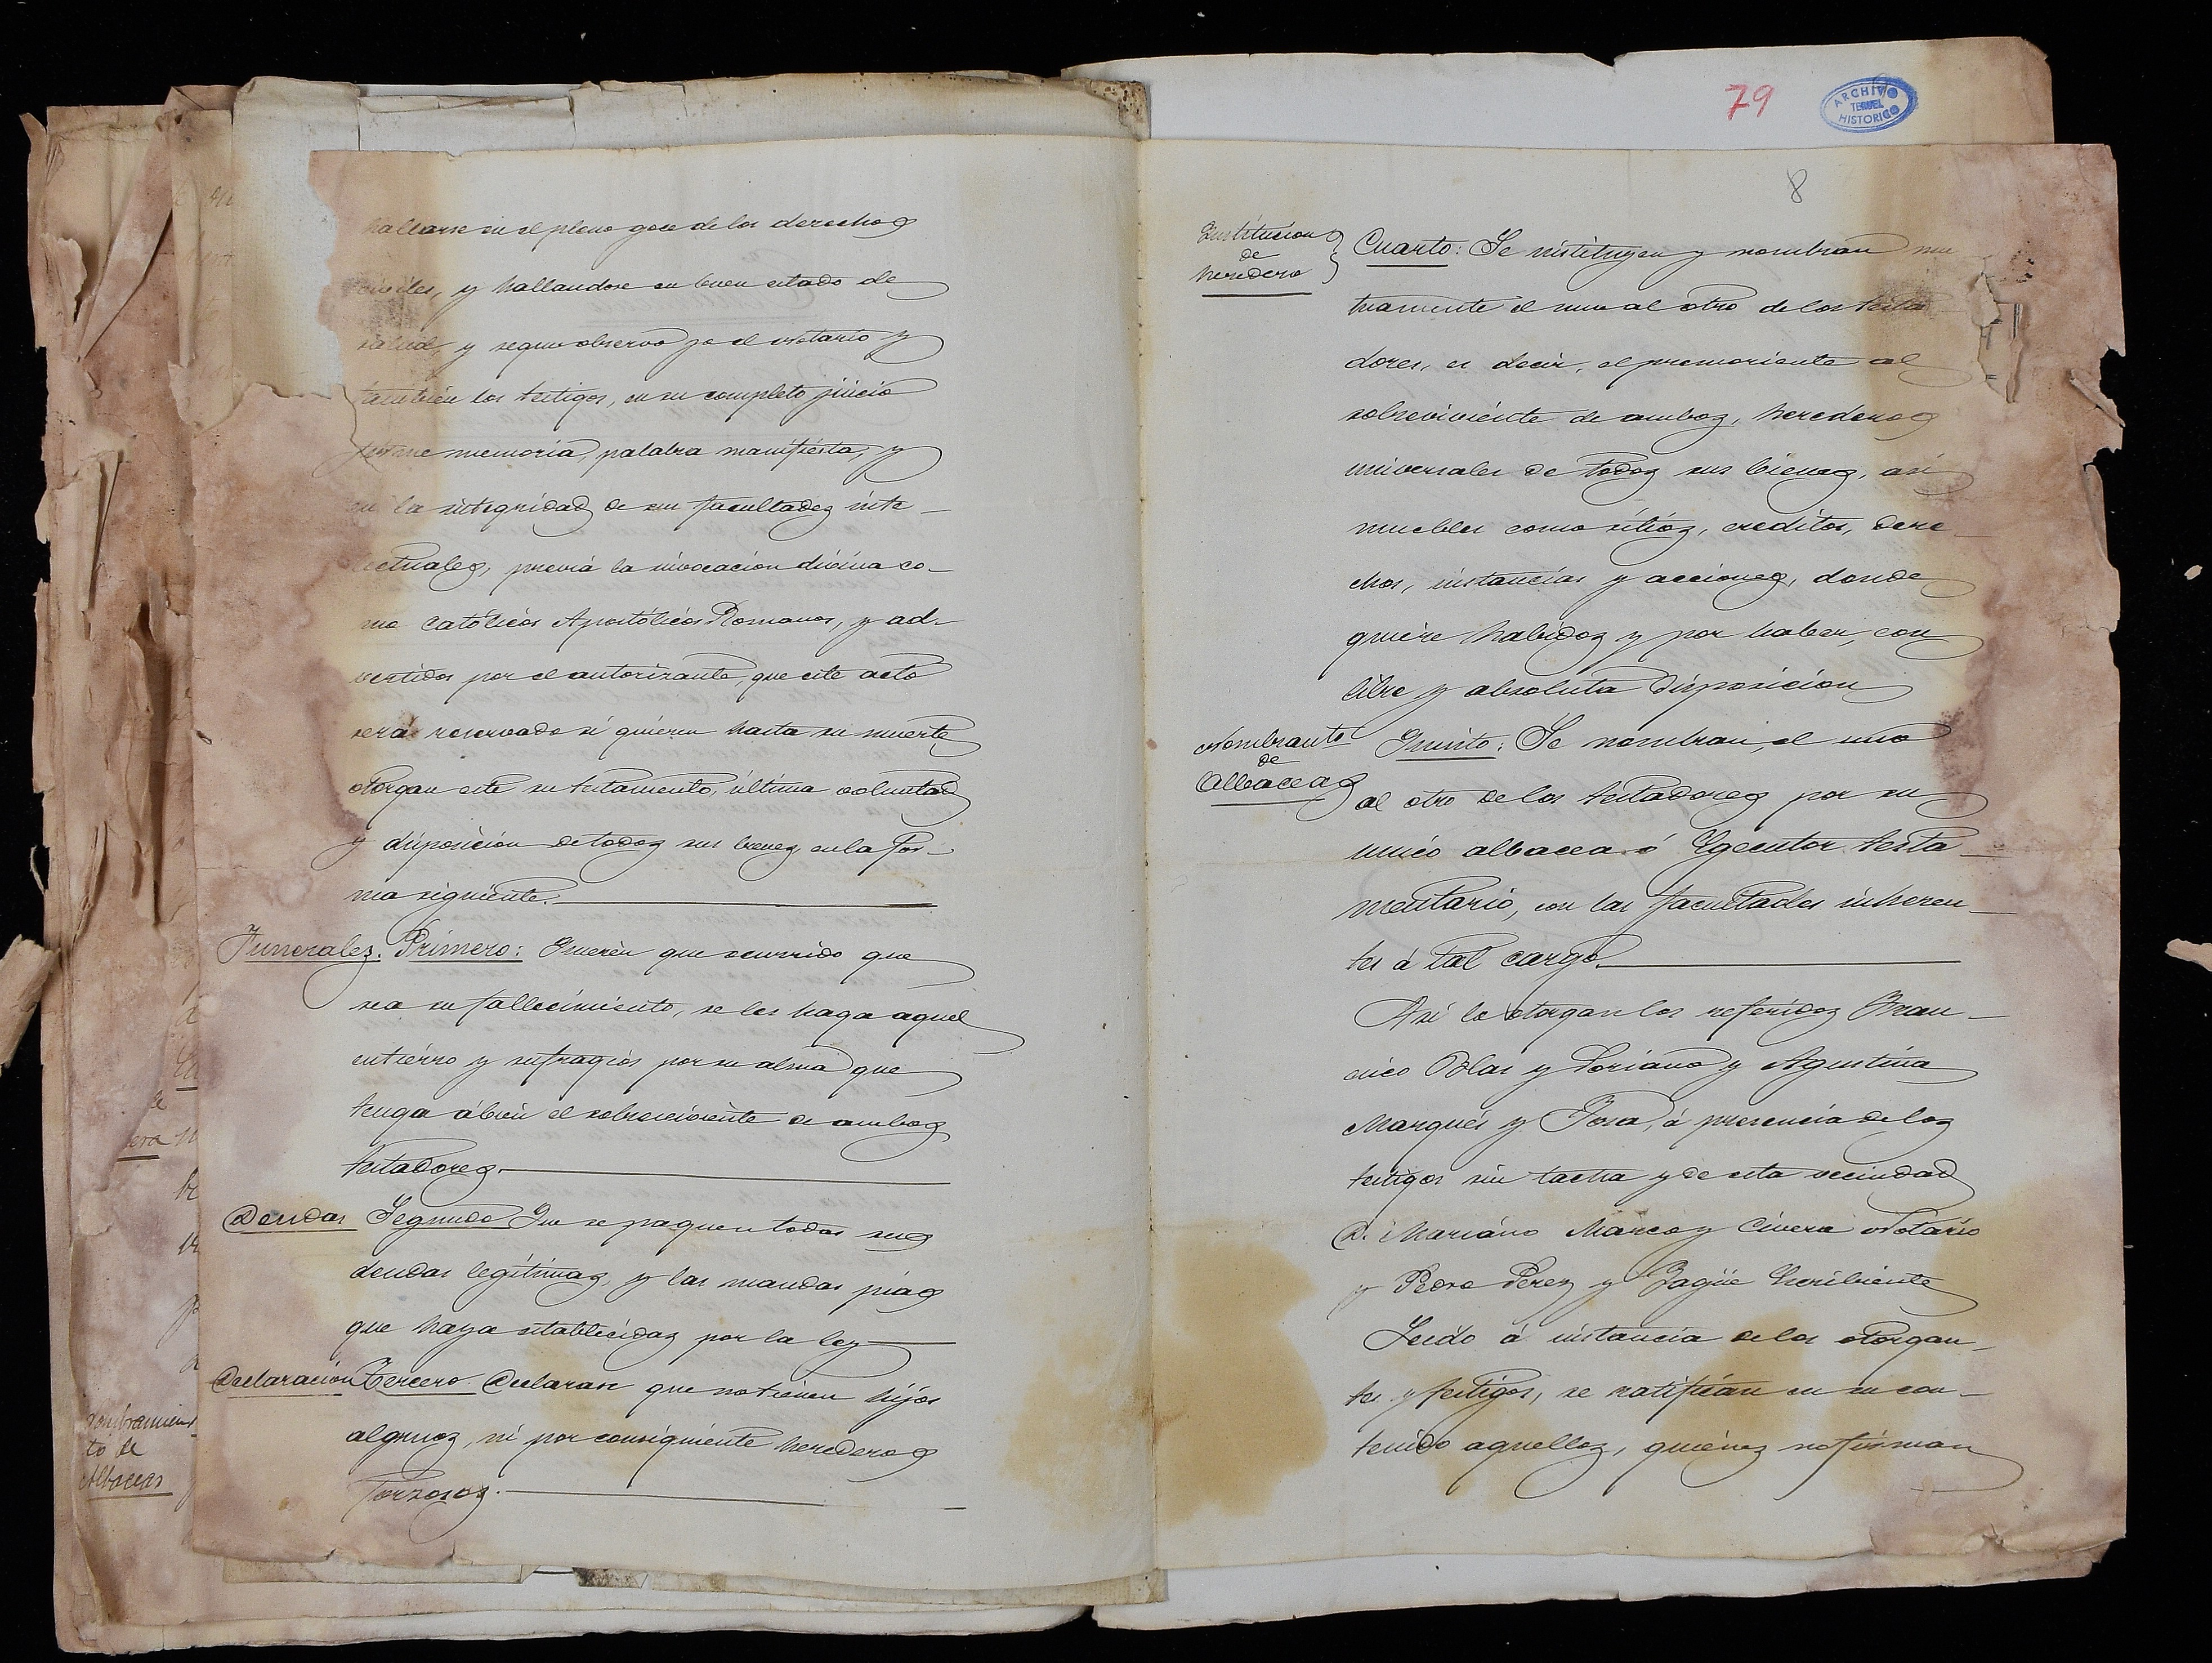 hallarse en el pleno goce de los derechos
civiles, y hallandose en buen estado de
salud, y segun observo yo el Notario y
tambien los testigos, en su completo juicio
firme memoria, palabra manifiesta, y
en la integridad de sus facultades inte-
lectuales, previa la invocacion divina co-
mo Católicos Apostólicos Romanos, y ad-
vertidos por el autorizante, que este acto
será reservado si quieren hasta su muerte
otorgan este su testamento, última voluntad
y disposicion de todos sus bienes, en la for-
ma siguiente.
Funerales. Primero: Quieren que ocurrido que
sea su fallecimiento, se les haga aquel
entierro y sufragios por su alma que
tenga á bien el sobreviviente de ambos
testadores.
Deudas Segundo Que se paguen todas sus
deudas legítimas, y las mandas pías
que haya establecidas por la ley
Declaracion Tercero Declaran que no tienen hijos
algunos, ni por consiguiente herederos
forzosos.
Nombramien-
to de
Albaceas
79
ARCHIVO
TERUEL
HISTORICO
8
Institucion
de
heredero
Cuarto: Se instituyen y nombran mu
tuamente el uno al otro de los testa
dores, es decir, el premoriente al
sobreviviente de ambos, herederos
universales de todos sus bienes, asi
muebles como sitios, creditos, dere-
chos, instancias y acciones, donde
quiere habidos y por haber, con
libre y absoluta disposicion
Nombramto
de
Albaceas
Quinto: Se nombran, el uno
al otro de los testadores por su
unico albacea ó Egecutor testa-
mentario, con las facultades inheren-
tes á tal cargo.
Asi lo otorgan los referidos Fran-
cisco Blas y Soriano y Agustina
Marqués y Tena, á presencia de los
testigos sin tacha y de esta vecindad
D. Mariano Marco y Civera Notario
y Pedro Perez y Yagüe Escribiente
Leido á instancia de los otorgan-
tes y testigos, se ratifican en su con-
tenido aquellos, quienes no firman